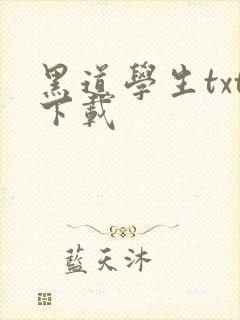 黑道學生txt
下載
藍天沐